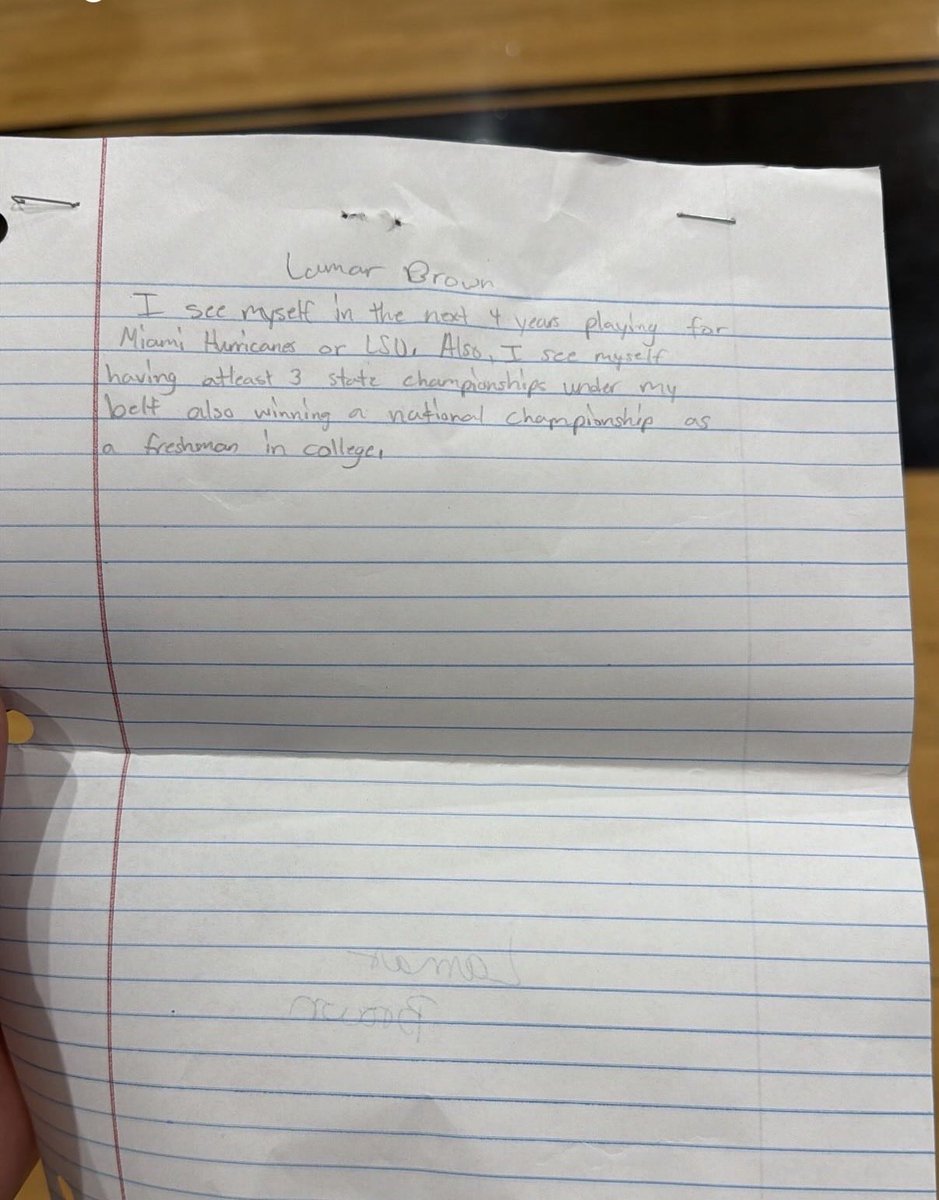 Lamar Brown
I see myself in the next 4 years playing for
Miami Hurricanes or LSU. Also, I see myself
having atleast 3 state championships under my
belt also winning a national championship as
a freshman in college.
Lamar
Brown